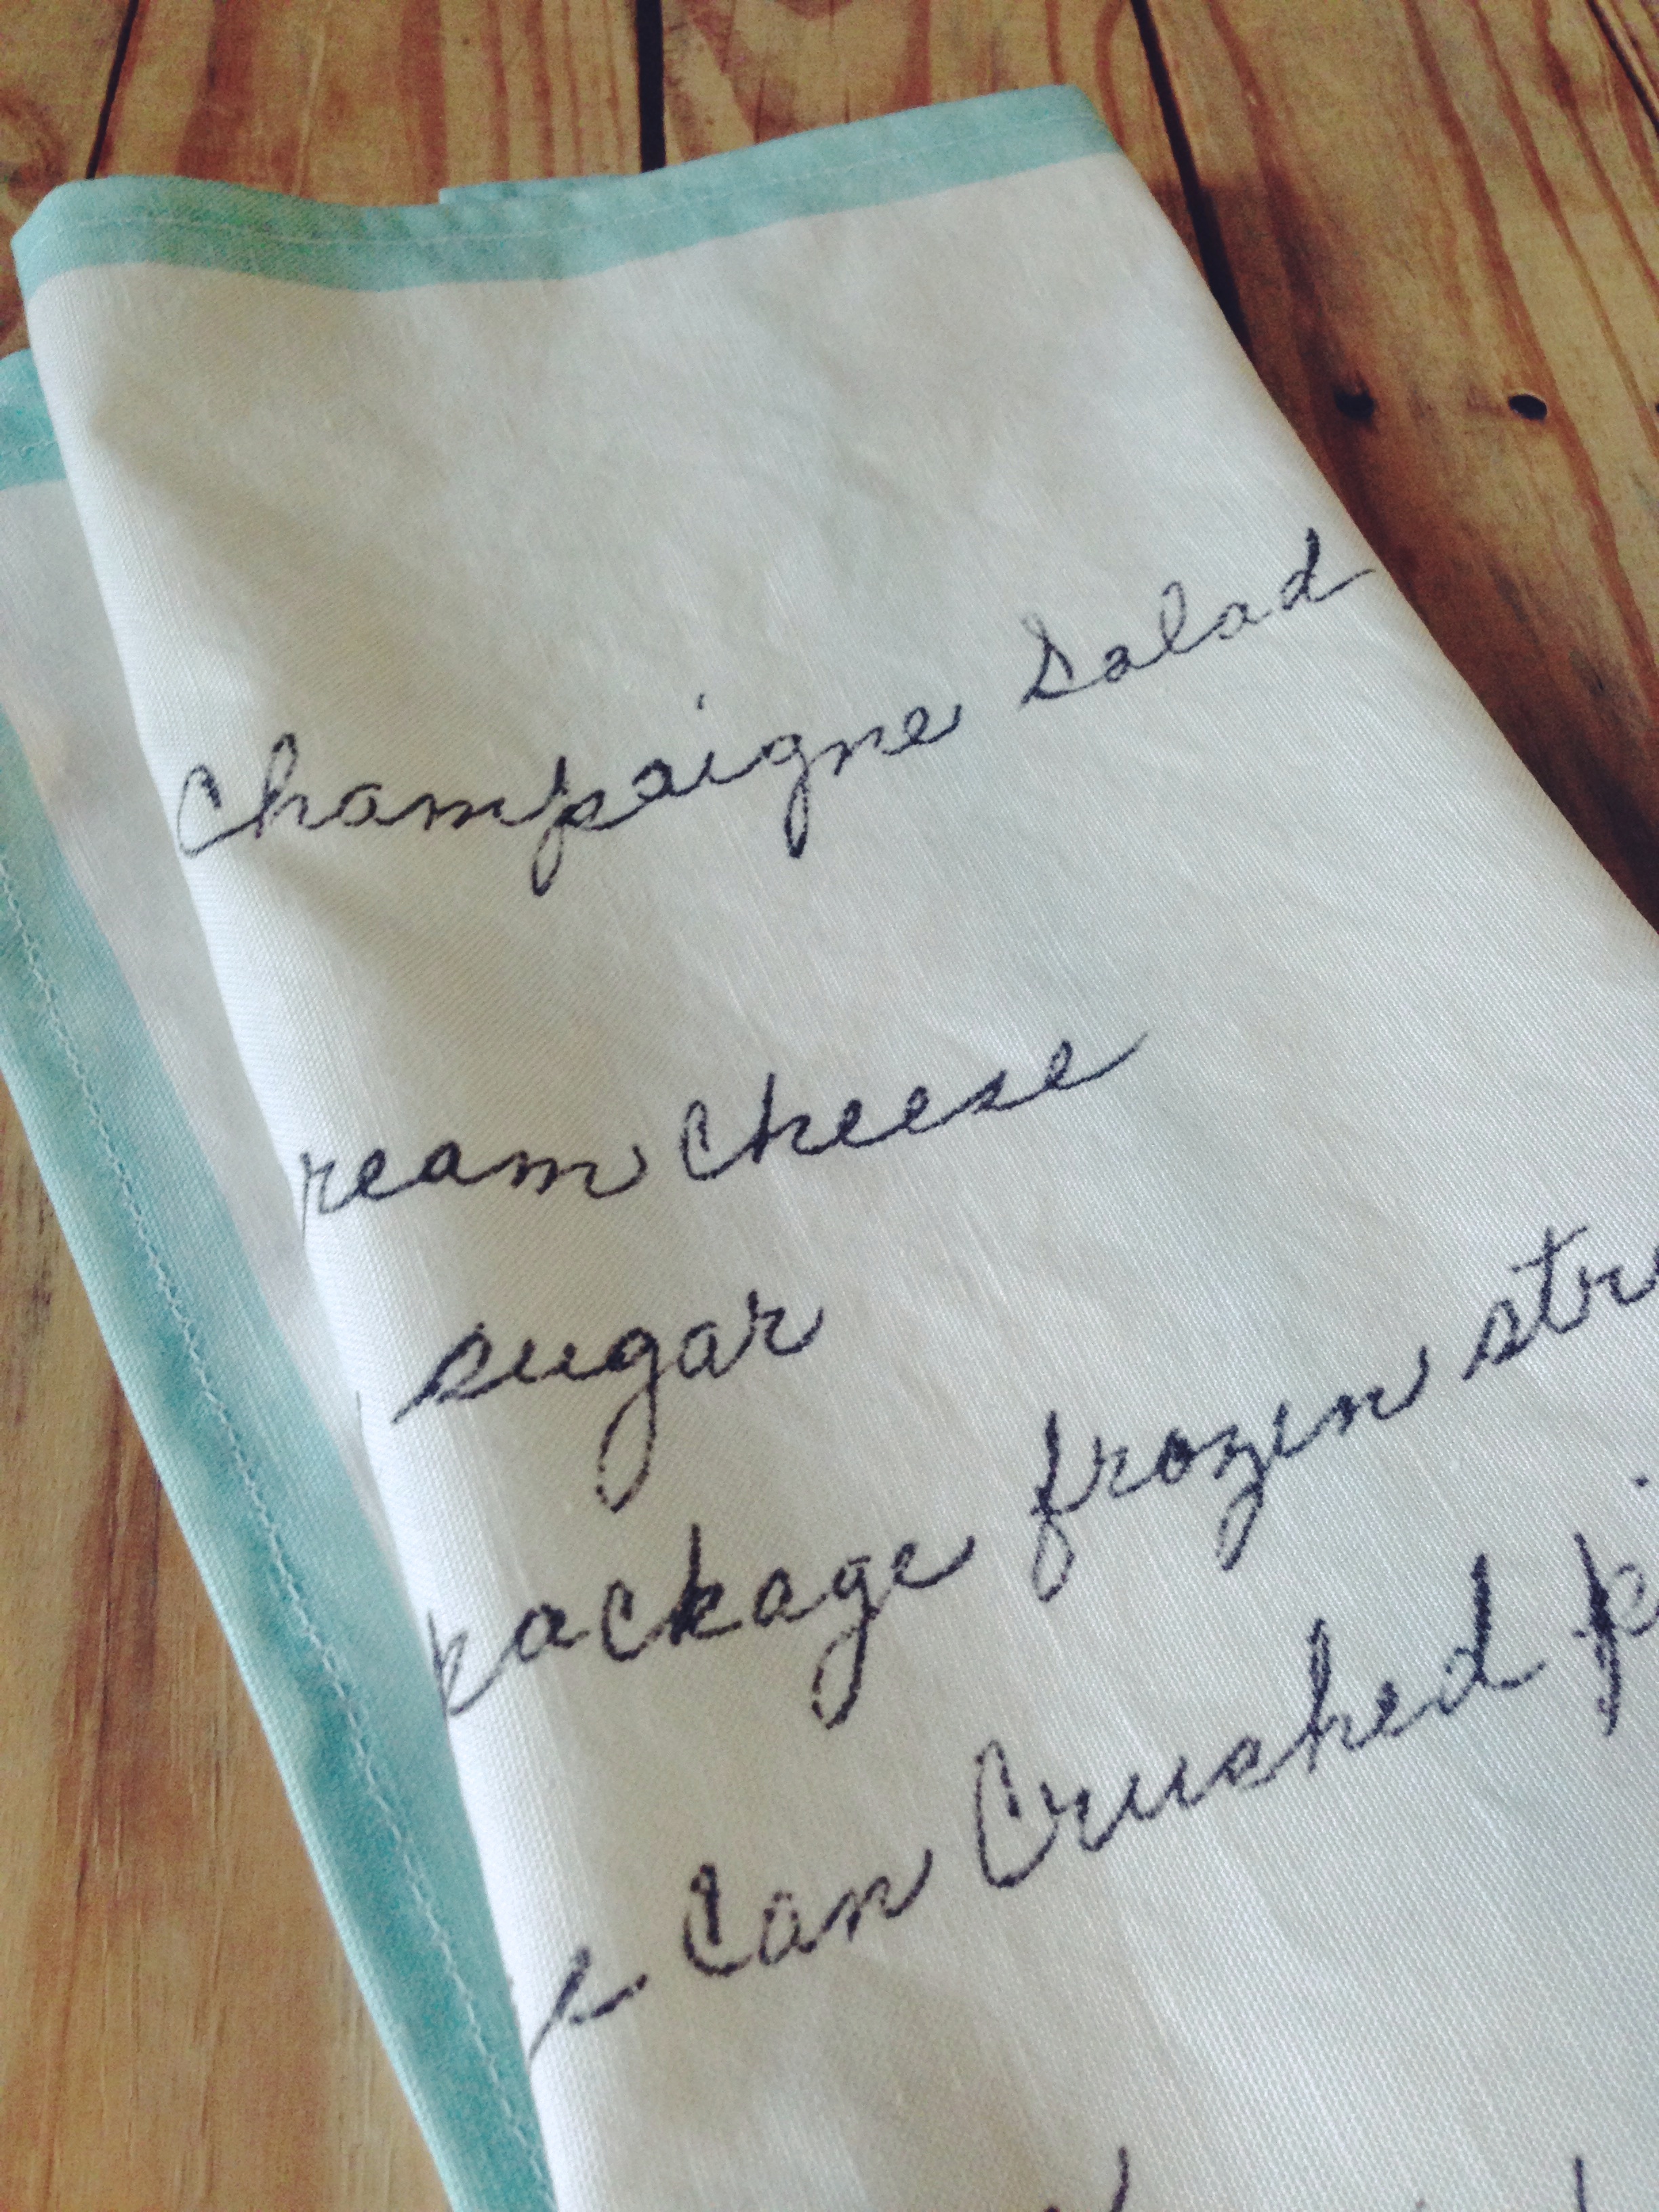 Champaigne Salad
ream Cheese
sugar
package frozen str
e Can Crushed pi